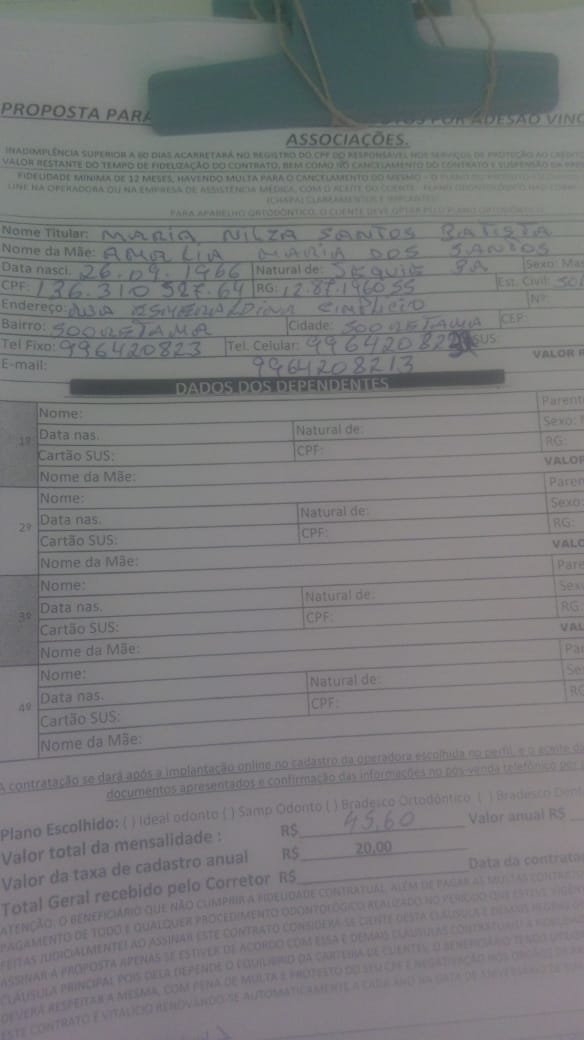 PROPOSTA PARA POR ADESÃO VINC
ASSOCIAÇÕES.
INADIMPLÊNCIA SUPERIOR A 60 DIAS ACARRETARÁ NO REGISTRO DO CPF DO RESPONSAVEL NOS SERVIÇOS DE PROTEÇÃO AO CRÉDITO
VALOR RESTANTE DO TEMPO DE FIDELIZAÇÃO DO CONTRATO, BEM COMO NO CANCELAMENTO DO CONTRATO E SUSPENSÃO DA
FIDELIDADE MÍNIMA DE 12 MESES, HAVENDO MULTA PARA O CANCELAMENTO DO MESMO - O PLANO
LINE NA OPERADORA OU NA EMPRESA DE ASSISTÊNCIA MÉDICA, COM O ACEITE DO CLIENTE - PLANO ODONTOLÓGICO NÃO
(CHAPA) CLAREAMENTOS E IMPLANTES!
PARA APARELHO ORTODÔNTICO, O CLIENTE DEVE OPTAR PELO PLANO ORTODÔNTICO
Nome Titular: MARIA NILZA SANTOS BATISTA
Nome da Mãe: AMALIA MARIA DOS SANTOS
Data nasci. 26.09.1966 Natural de: JEQUIE BA Sexo: Mas
CPF: 136.310 527.64 RG: 12.87.1960 55 Est. Civil: SO
Endereço: RUA ESMERALDINA Nº:
Bairro: SOORETAMA Cidade: SOORETAMA CEP:
Tel Fixo: 996420823 Tel. Celular: 996420822 SUS:
E-mail: 9964208213 VALOR R
DADOS DOS DEPENDENTES
1º Nome: Parent
Data nas. Natural de: Sexo: M
Cartão SUS: CPF: RG:
Nome da Mãe: VALOR
2º Nome: Paren
Data nas. Natural de: Sexo:
Cartão SUS: CPF: RG:
Nome da Mãe: VALO
3º Nome: Pare
Data nas. Natural de: Sex
Cartão SUS: CPF: RG
Nome da Mãe: VAL
4º Nome: Pa
Data nas. Natural de: Se
Cartão SUS: CPF: RG
Nome da Mãe:
A contratação se dará após a implantação online no cadastro da operadora escolhida no perfil, e o aceite da
documentos apresentados e confirmação das informações no pós-venda telefônico por
Plano Escolhido: ( ) Ideal odonto ( ) Samp Odonto ( ) Bradesco Ortodôntico ( ) Bradesco Dent
Valor total da mensalidade : R$ 45,60 Valor anual R$
Valor da taxa de cadastro anual R$ 20,00
Total Geral recebido pelo Corretor R$ Data da contrata
ATENÇÃO: O BENEFICIÁRIO QUE NÃO CUMPRIR A FIDELIDADE CONTRATUAL, ALÉM DE PAGAR AS MULTAS CONTRATU
PAGAMENTO DE TODO E QUALQUER PROCEDIMENTO ODONTOLÓGICO REALIZADO NO PERÍODO QUE ESTEVE
FEITAS JUDICIALMENTE! AO ASSINAR ESTE CONTRATO CONSIDERA-SE CIENTE DESTA CLÁUSULA E DEMAIS
ASSINAR A PROPOSTA APENAS SE ESTIVER DE ACORDO COM ESSA E DEMAIS CLÁUSULAS CONTRATUAIS!
CLÁUSULA PRINCIPAL POIS DELA DEPENDE O EQUILIBRIO DA CARTEIRA DE CLIENTES, O BENEFICIÁRIO
DEVERÁ RESPEITAR A MESMA, COM PENA DE MULTA E PROTESTO DO SEU CPF E NEGATIVAÇÃO NOS ORGÃOS
ESTE CONTRATO É VITALICIO RENOVANDO-SE AUTOMATICAMENTE A CADA ANO NA DATA DE ANIVERSÁRIO DE